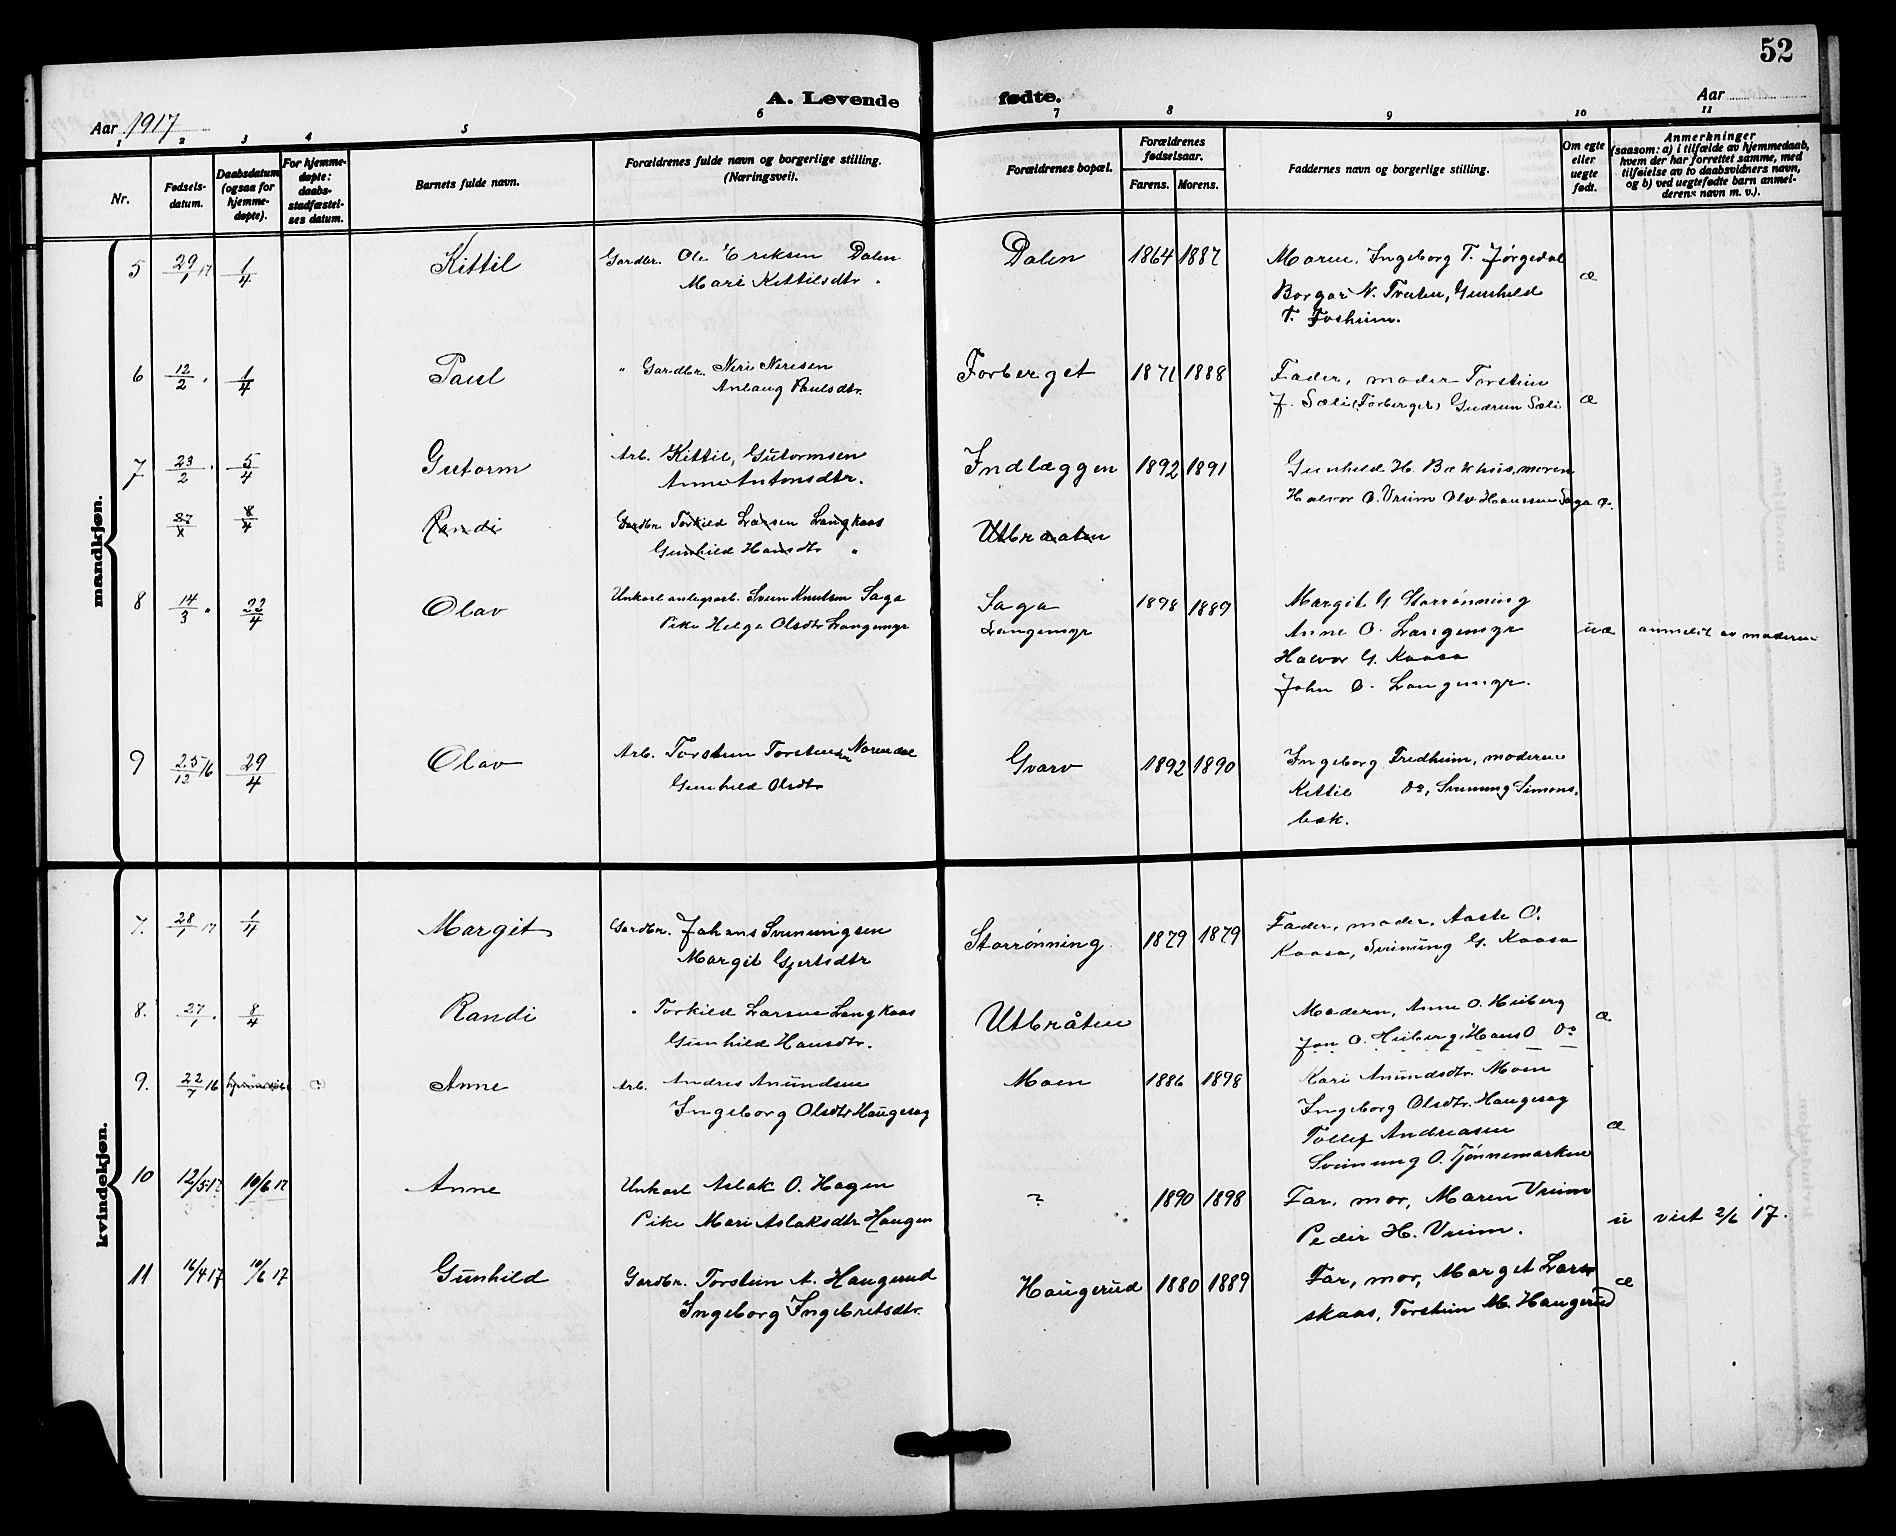 52
A. Levende fødte.
Aar 1917
Aar
1 2 3 4 5 6 7 8 9 10 11
Nr.
Fødsels-
datum.
Daabsdatum
(ogsaa for
hjemme-
døpte).
For hjemme-
døpte:
daabs-
stadfæstel-
ses datum.
Barnets fulde navn.
Forældrenes fulde navn og borgerlige stilling.
(Næringsvei).
Forældrenes bopæl.
Forældrenes
fødselsaar.
Farens. Morens.
Faddernes navn og borgerlige stilling.
Om egte
eller
uegte
født.
Anmerkninger
(saasom: a) i tilfælde av hjemmedaab,
hvem der har forrettet samme, med
tilføielse av to daabsvidners navn,
og b) ved uegtefødte barn anmel-
derens navn m. v.).
mandkjøn.
5 29/1 17 1/4 Kittil Gardbr. Ole Eriksen Dalen Dalen 1864 1887 Moren, Ingeborg T. Jørgedal æ
Mari Kittilsdtr. Borgar N. Tveten, Gunhild
T. Fosheim.
6 12/2 " 1/4 Paul " Gardbr. Neri Nerisen Forberget 1871 1888 Fader, moder Torstein æ
Anlaug Paulsdtr. J. Sæli (Forberget) Gudrun Sæli
7 23/2 " 5/4 Gutorm Arb. Kittil Gutormsen Indlæggen 1892 1891 Gunhild H. Bækhus, moren
Anne Antonsdtr. Halvor O. Vreim Olv Hanssen Saga æ.
27/1 8/4 Randi Gardbr. Torkild Larsen Langkaas Utbraaten
Gunhild Hansdtr "
8 14/3 " 22/4 Olav Unkarl anlegsarb. Svein Knutson Saga Saga 1898 1889 Margit G Storrønning
Pike Helge Olsdtr Langemyr Langemyr Anne O. Langemyr uæ anmeldt av moderen
Halvor G. Kaasa
John O. Langemyr.
9 25/12 16 29/4 Olav Arb. Torstein Torsteinsen Norendal Gvarv 1892 1890 Ingeborg Fredheim, moderen
Gunhild Olsdtr Kittil Do, Sveinung Simons-
bek.
kvindekjøn.
7. 28/1 17 1/4 Margit Gardbr. Johans Sveinungsen Storrønning 1879 1879 Fader, moder, Aaste O.
Margit Gjertsdtr Kaasa, Sveinung G. Kaasa
8. 27/1 " 8/4 Randi " Torkild Larsen Langkaas Utbråten Modern, Anne O. Heiberg æ
Gunhild Hansdtr. Jon O. Heiberg, Hans O Do
9. 22/7 16 Anne Arb. Andres Anundsen Moen 1886 1898 Kari Anundsdtr. Moen
Ingeborg Olsdtr Haugesag Ingeborg Olsdtr. Haugesag
Tollef Andreasen æ
Sveinung O. Tjønnemarken
10 12/5 17 10/6 17 Anne Unkarl Aslak O. Hagen ? 1890 1898 Far, mor, Maren Vreim
Pike Mari Aslaksdtr Haugen Peder H. Vreim. u viet 2/6 17.
11 16/4 17 10/6 17 Gunhild Gardbr. Torstein A. Haugerud Haugerud 1880 1889 Far, mor, Marget Lars- æ
Ingeborg Ingebretsdtr. skaas, Torstein M. Haugerud